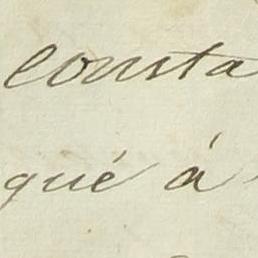 consta
qué á